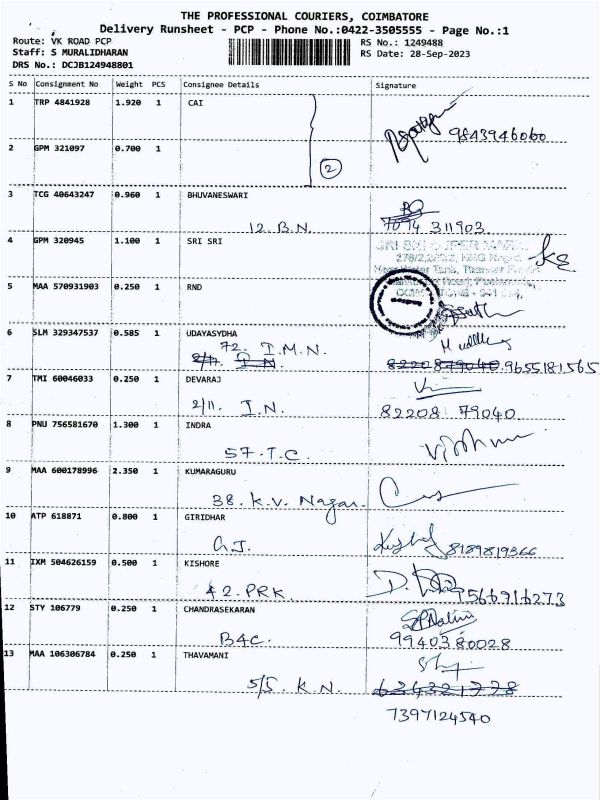 THE PROFESSIONAL COURIERS, COIMBATORE
Delivery Runsheet - PCP - Phone No.:0422-3505555 - Page No.:1
Route: VK ROAD PCP RS No.: 1249488
Staff: S MURALIDHARAN RS Date: 28-Sep-2023
DRS No.: DCJB124948801
S No Consignment No Weight PCS Consignee Details Signature
1 TRP 4841928 1.920 1 CAI
9843946060
2 GPM 321097 0.700 1
2
3 TCG 40643247 0.960 1 BHUVANESWARI
12. B.N. 7094 311903
4 GPM 320945 1.100 1 SRI SRI
5 MAA 570931903 0.250 1 RND
6 SLM 329347537 0.585 1 UDAYASYDHA
72. I.M.N.
2/11. I.N. 8220879040 9655181565
7 TMI 60046033 0.250 1 DEVARAJ
2/11. I.N. 82208 79040
8 PNU 756581670 1.300 1 INDRA
57.T.C.
9 MAA 600178996 2.350 1 KUMARAGURU
38. K.V. Nagar.
10 ATP 618871 0.800 1 GIRIDHAR
8189819366
11 IXM 504626159 0.500 1 KISHORE
42. PRK. 9566916273
12 STY 106779 0.250 1 CHANDRASEKARAN
B4C. 9940380028
13 MAA 106306784 0.250 1 THAVAMANI
5/5. K.N.
7397124540